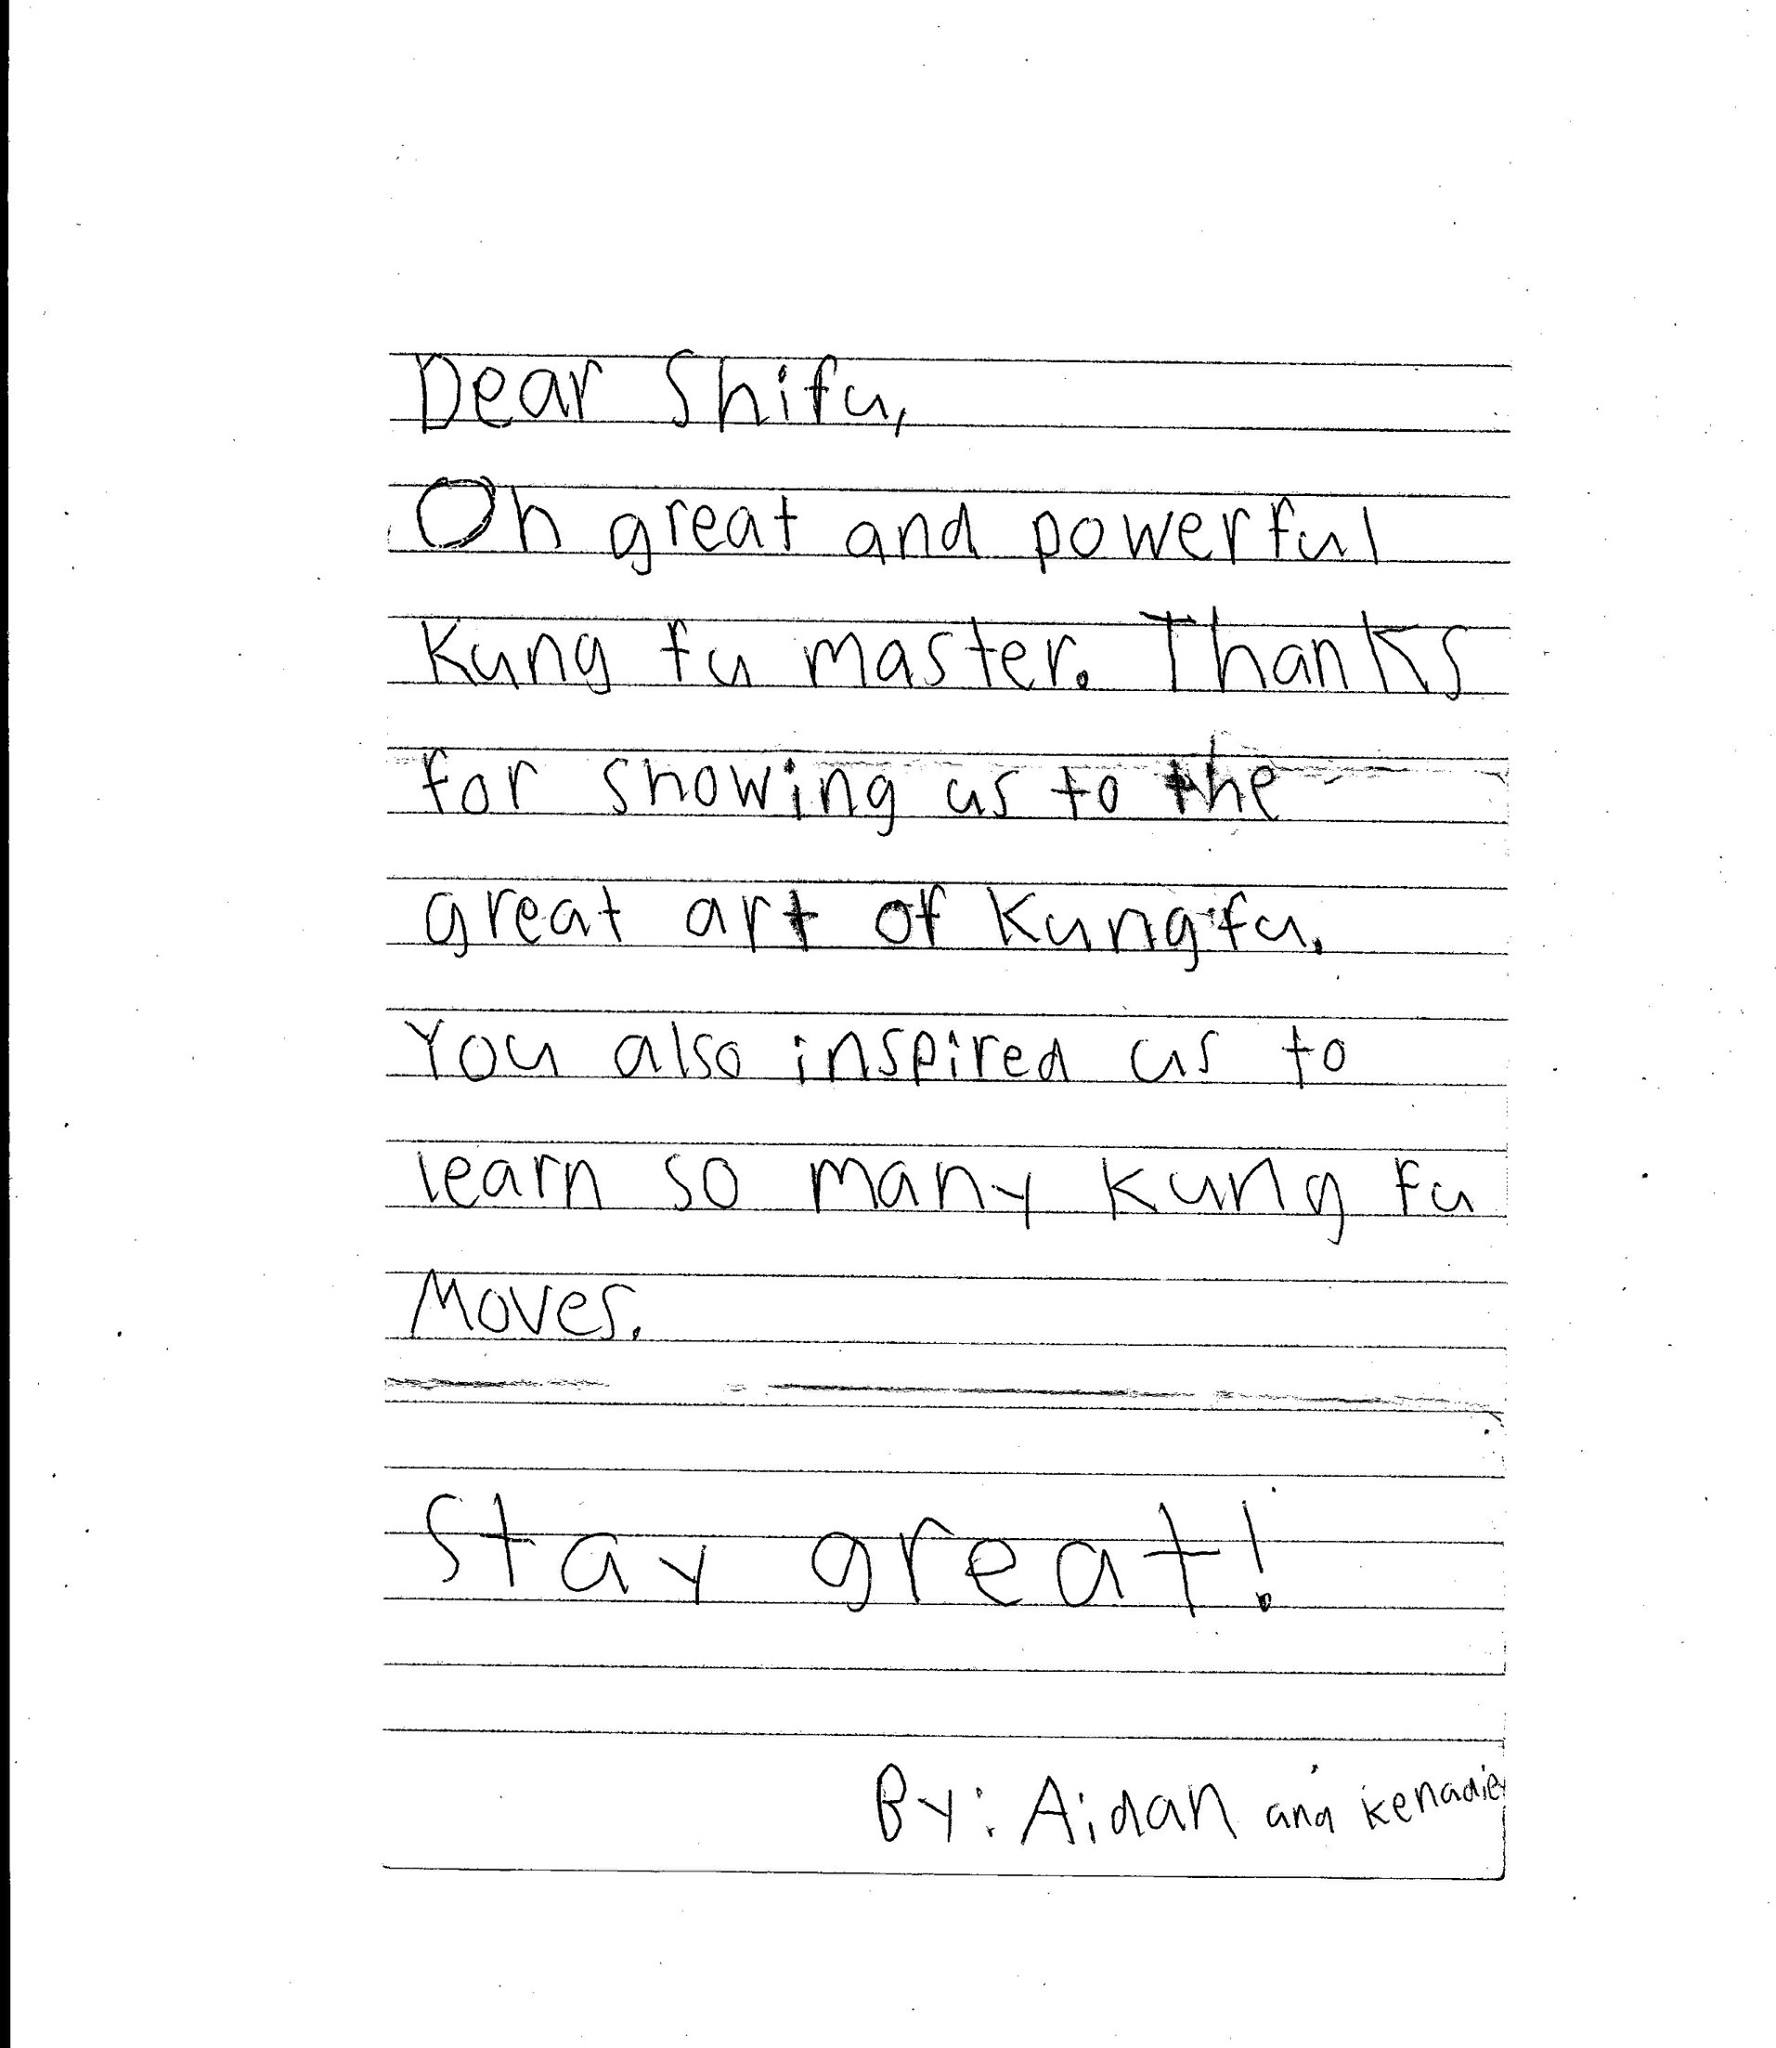 Dear Shifu,
Oh great and powerful
Kung fu master. Thanks
for showing us to the
great art of Kung fu.
You also inspired us to
learn so many Kung fu
Moves.
Stay great!
By: Aidan and Kenadie